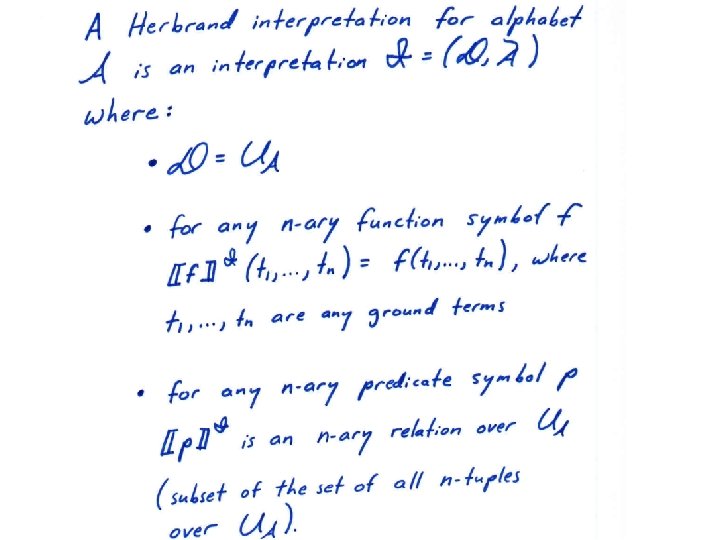 A Herbrand interpretation for alphabet
𝒜 is an interpretation ℑ = (𝒟, λ)
where:
• 𝒟 = U_A
• for any n-ary function symbol f
⟦f⟧^ℑ (t₁,..., tₙ) = f(t₁,..., tₙ), where
t₁,..., tₙ are any ground terms
• for any n-ary predicate symbol p
⟦p⟧^ℑ is an n-ary relation over U_A
(subset of the set of all n-tuples
over U_A).